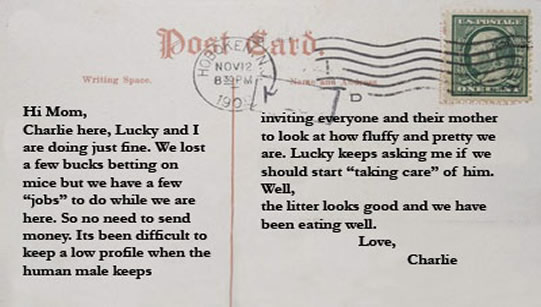 Post Card.
U.S. POSTAGE
HOBOKEN, N.J.
NOV 12
8 30 PM
190
Writing Space.
Name and Address
D
ONE CENT
Hi Mom,
Charlie here, Lucky and I
are doing just fine. We lost
a few bucks betting on
mice but we have a few
“jobs” to do while we are
here. So no need to send
money. Its been difficult to
keep a low profile when the
human male keeps
inviting everyone and their mother
to look at how fluffy and pretty we
are. Lucky keeps asking me if we
should start “taking care” of him.
Well,
the litter looks good and we have
been eating well.
Love,
Charlie